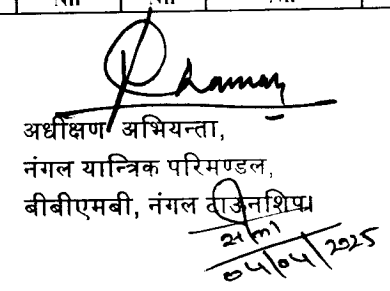 अधीक्षण अभियन्ता,
नंगल यान्त्रिक परिमण्डल,
बीबीएमबी, नंगल टाऊनशिप।
04/04/2025